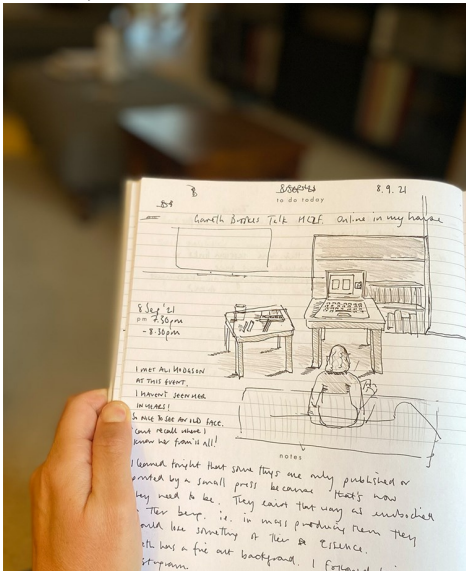 to do today
8.9.21
Gareth Brookes Talk Online in my house
8 Sep '21
pm 7.30pm
- 8.30pm
I MET ALI HODGSON
AT THIS EVENT.
I HAVEN'T SEEN HER
IN YEARS!
SO NICE TO SEE AN OLD FACE.
can't recall where I
know her from is all!
notes
learned tonight that some things are only published or
printed by a small press because that's how
they need to be. They exist that way as embodied
in their being. i.e. in mass producing them they
would lose something of their essence.
has a fine art background. I followed